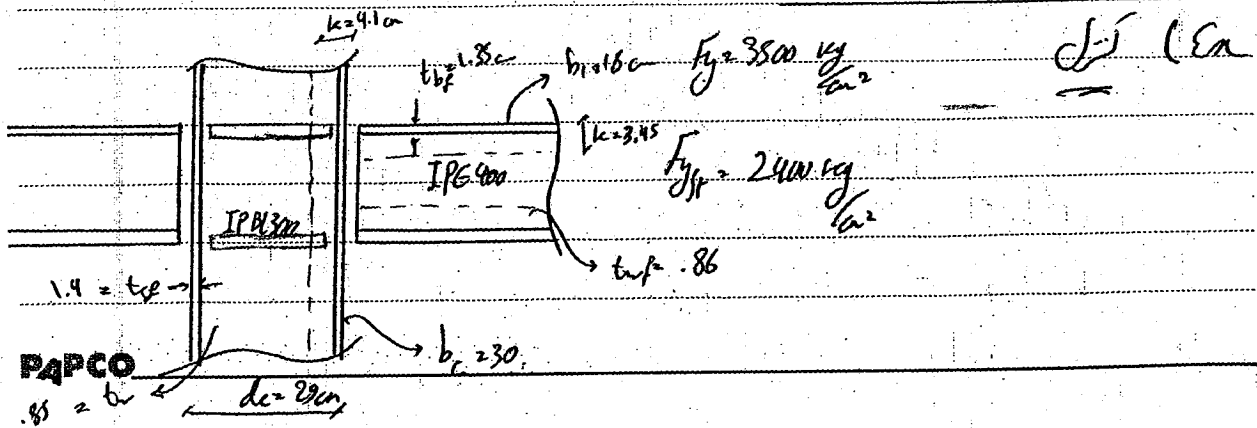 مثال (Ex
k=4.1 cm
t_bf=1.35 cm
b_f=18 cm
Fy=3500 kg/cm²
k=3.45
IPE400
Fy_st = 2400 kg/cm²
IPBl300
t_wf = .86
1.4 = t_cf
b_c=30
PAPCO
.85 = t_w
dc=29cm